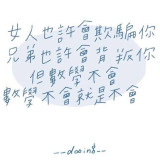 女人也許會欺騙你
兄弟也許會背叛你
但數學不會
數學不會就是不會
--dosing--